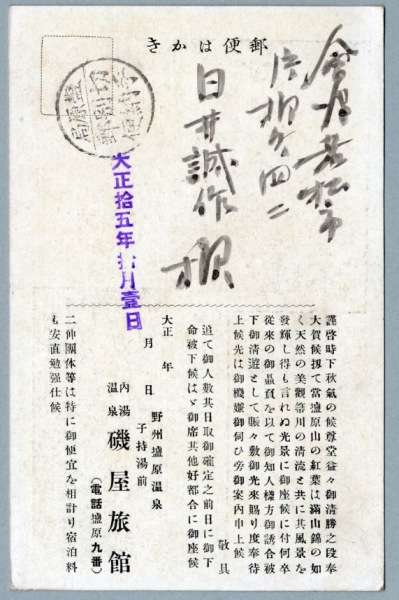 郵便はかき
會津若松市
片柳町四二
臼井誠作様
大正拾五年拾月壹日
謹啓時下秋氣の候尊堂益々御淸勝之段奉
大賀候扨て當塩原山の紅葉は滿山錦の如
く天然の美觀箒川の淸流と共に其風景を
發輝し得も言れぬ光景に御座候に付何卒
從來の御贔負を以て御知人樣方御誘合被
下御淸遊として賑々敷御光來賜り度奉待
上候先は御機嫌御伺ひ旁御案內申上候
敬具
追て御人數其日取御確定之前日に御下
命被下候はゞ御席其他好都合に御座候
大正 年 月 日
野州塩原溫泉
子持湯前
內湯
溫泉
磯屋旅館
(電話塩原九番)
二伸團体等は特に御便宜を相計り宿泊料
も安直勉强仕候